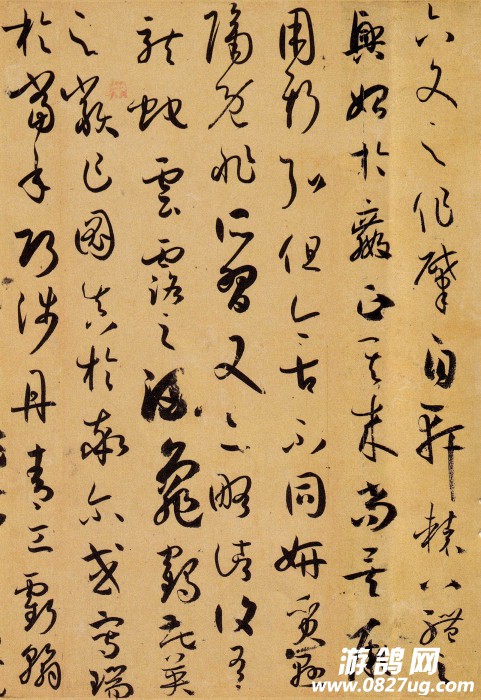 六文之作肇自軒轅八體之
興始於嬴正其來尚矣厥
用斯弘但今古不同妍質懸
隔既非所習又亦略諸復有
龍蛇雲露之流龜鶴花英
之類乍圖真於率爾或寫瑞
於當年巧涉丹青工虧翰
游鸽网
www.0827ug.com